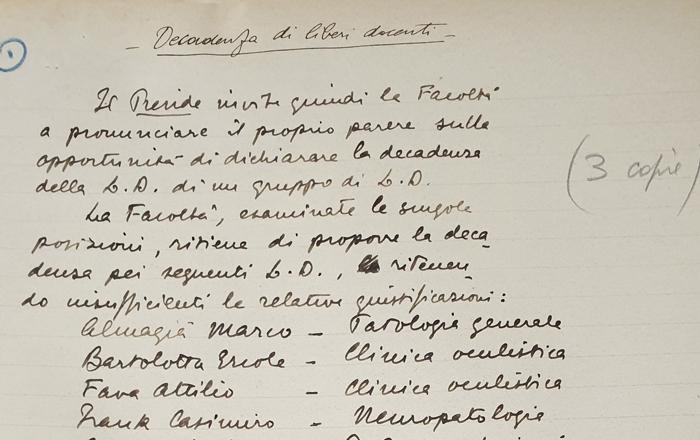 - Decadenza di liberi docenti -
Il Preside invita quindi la Facoltà
a pronunciare il proprio parere sulla
opportunità di dichiarare la decadenza
della L.D. di un gruppo di L.D.
(3 copie)
La Facoltà, esaminate le singole
posizioni, ritiene di proporre la deca_
denza pei seguenti L.D., ritenen_
do insufficienti le relative giustificazioni:
Almagià Marco - Patologia generale
Bartolotta Ercole - Clinica oculistica
Fava Attilio - Clinica oculistica
Frank Casimiro - Neuropatologia